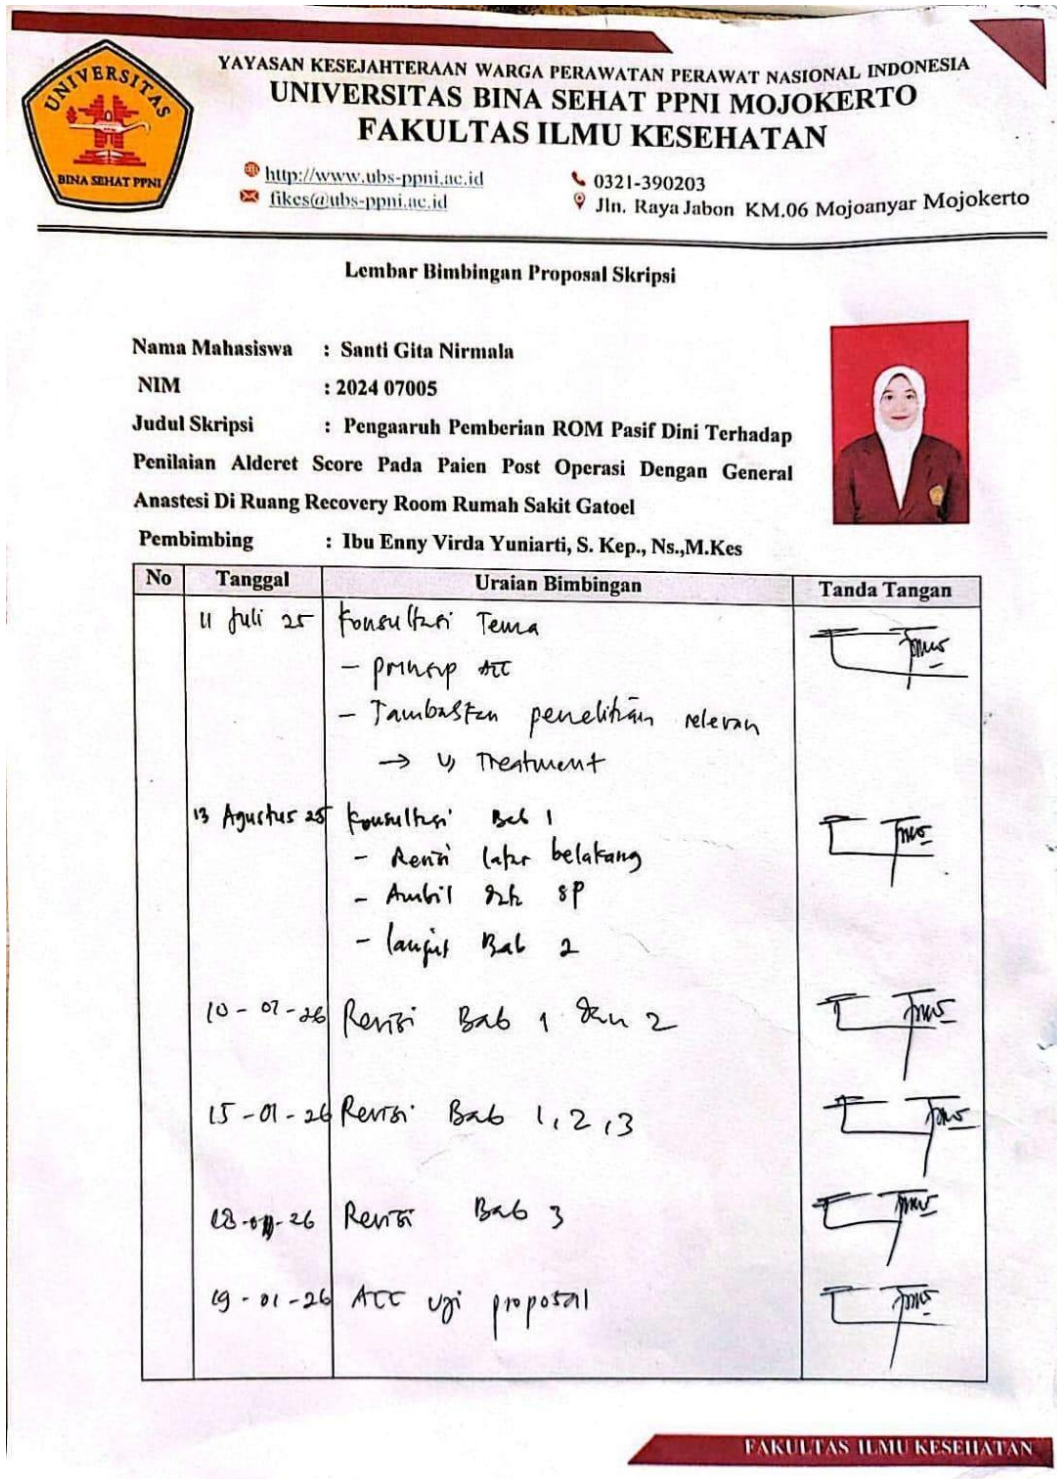 YAYASAN KESEJAHTERAAN WARGA PERAWATAN PERAWAT NASIONAL INDONESIA
UNIVERSITAS BINA SEHAT PPNI MOJOKERTO
FAKULTAS ILMU KESEHATAN
UNIVERSITAS
BINA SEHAT PPNI
http://www.ubs-ppni.ac.id
0321-390203
fikes@ubs-ppni.ac.id
Jln. Raya Jabon KM.06 Mojoanyar Mojokerto
Lembar Bimbingan Proposal Skripsi
Nama Mahasiswa : Santi Gita Nirmala
NIM : 2024 07005
Judul Skripsi : Pengaaruh Pemberian ROM Pasif Dini Terhadap
Penilaian Alderet Score Pada Paien Post Operasi Dengan General
Anastesi Di Ruang Recovery Room Rumah Sakit Gatoel
Pembimbing : Ibu Enny Virda Yuniarti, S. Kep., Ns.,M.Kes
No Tanggal Uraian Bimbingan Tanda Tangan
11 Juli 25 Konsultasi Tema
- Prinsip ACC
- Tambahkan penelitian relevan
→ Treatment
13 Agustus 25 Konsultasi Bab 1
- Revisi latar belakang
- Ambil SP
- lanjut Bab 2
Revisi Bab 1 dan 2
15-01-26 Revisi Bab 1, 2, 3
Revisi Bab 3
19-01-26 ACC uji proposal
FAKULTAS ILMU KESEHATAN